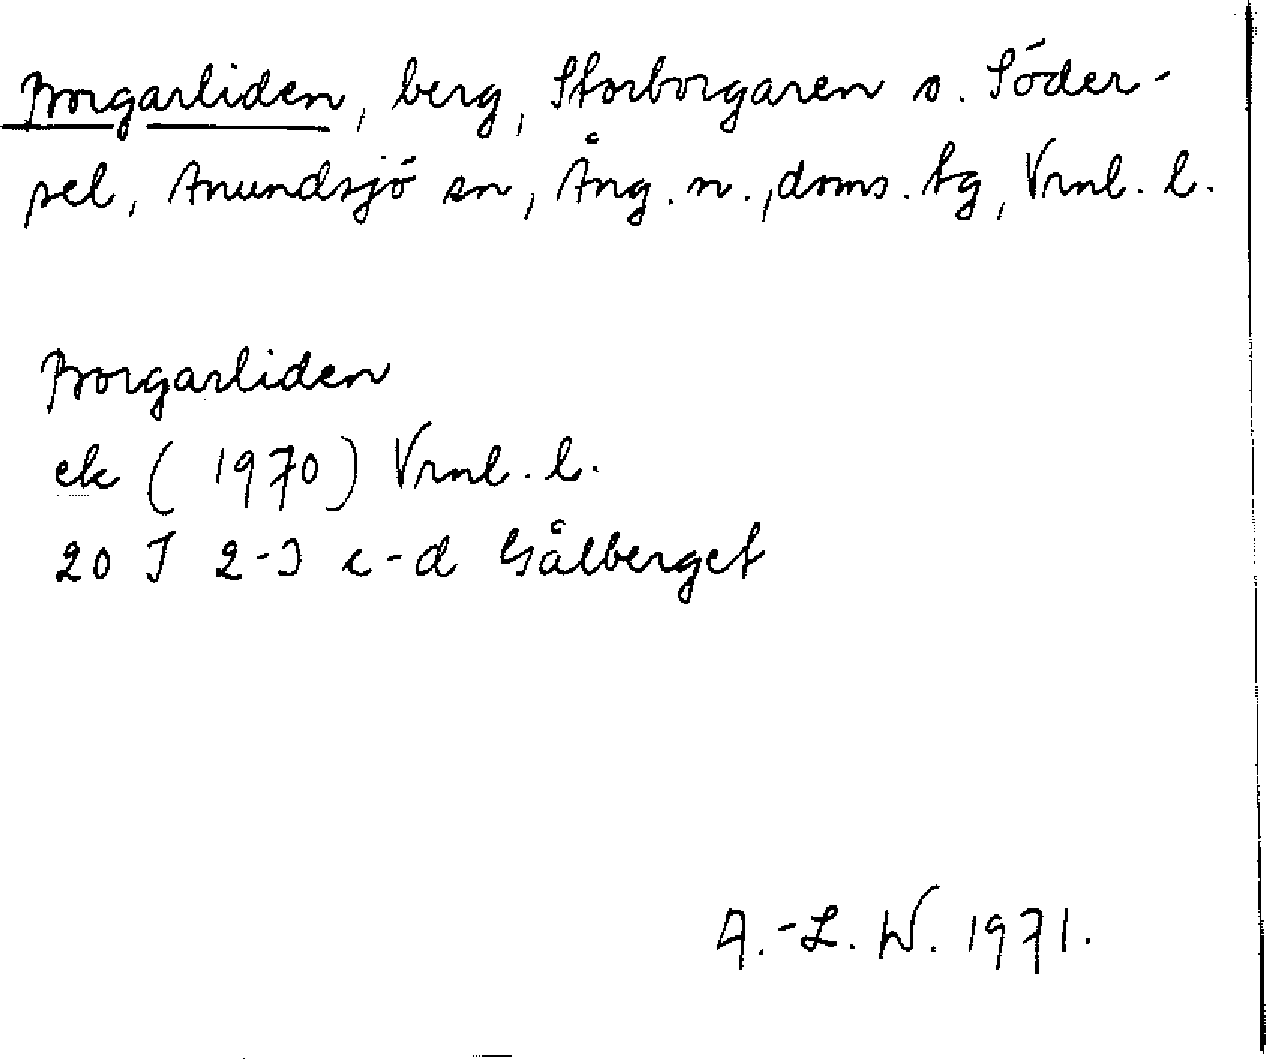 Borgarliden, berg, Storborgaren s. Söder-
sel, Anundsjö sn, Ång. n., doms. tg, Vrnl. l.
Borgarliden
ek (1970) Vrnl. l.
20 I 2-3 c-d Gålberget
A.-L. W. 1971.